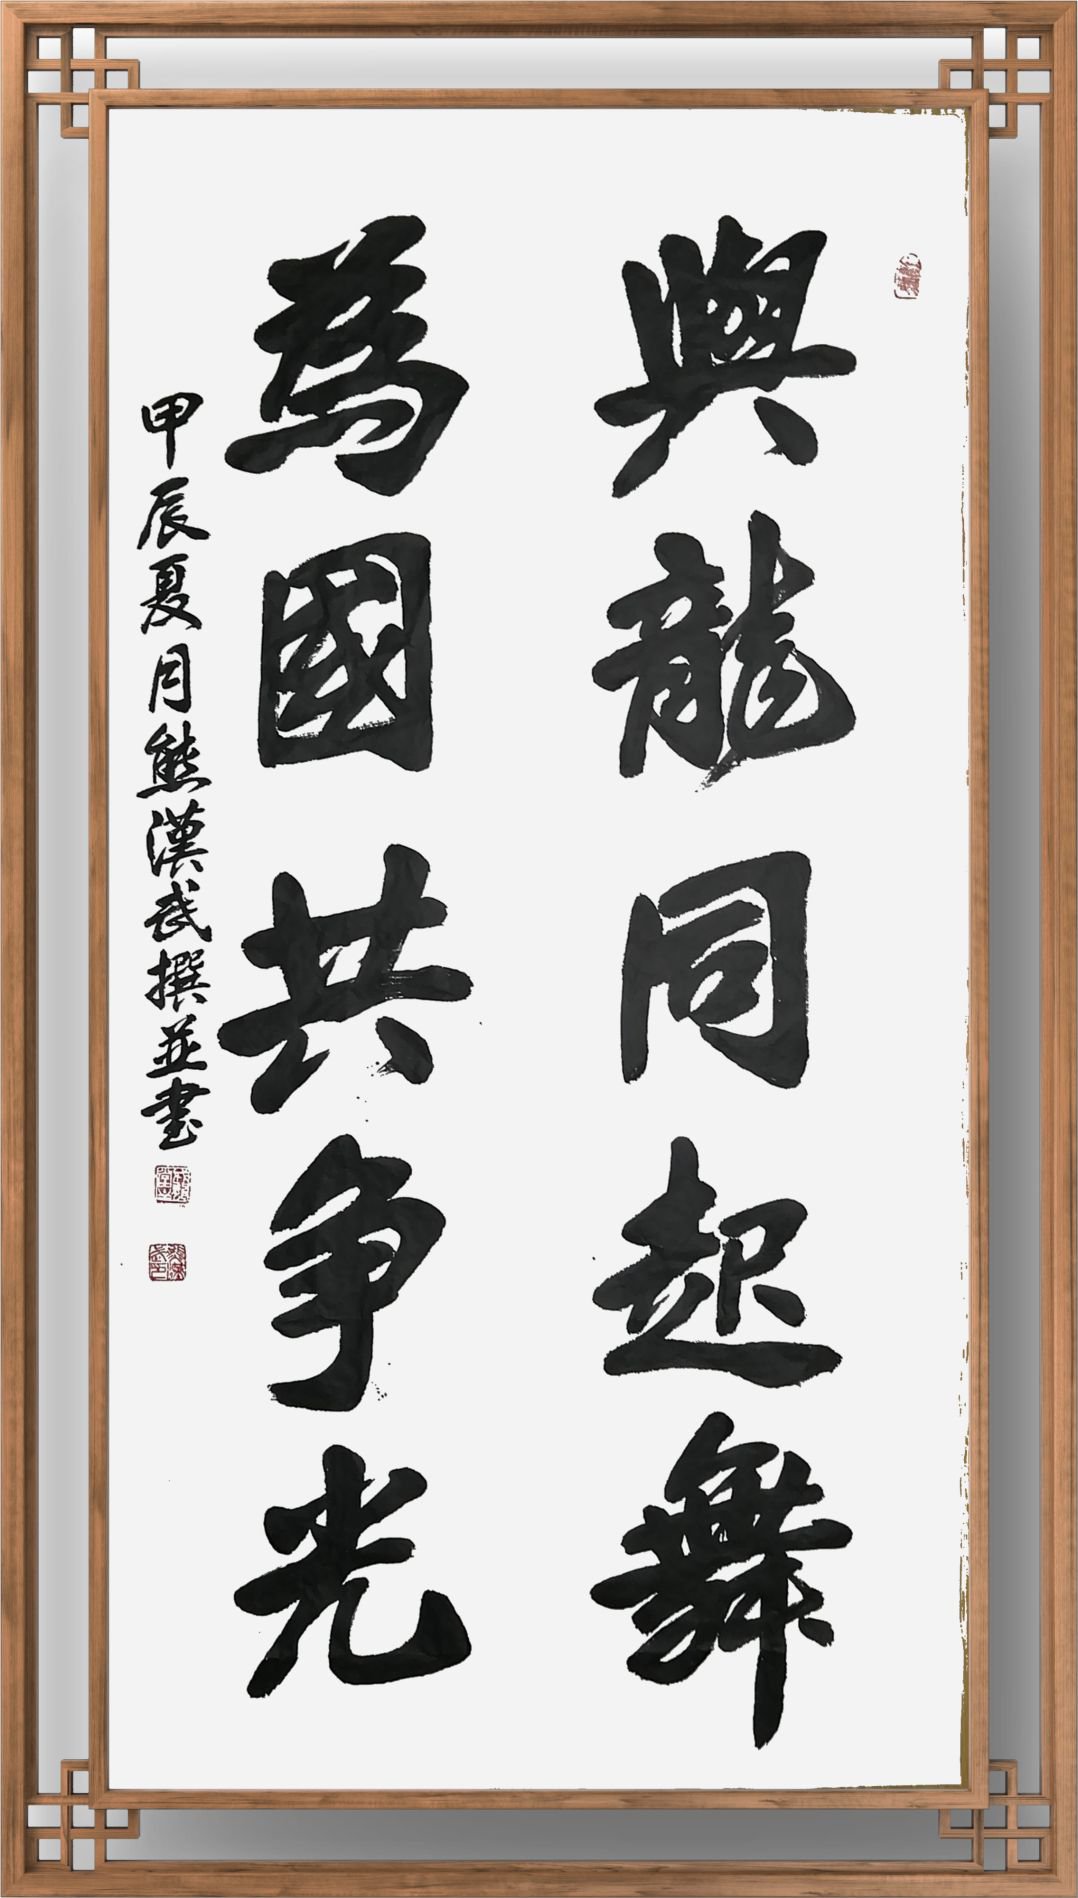 與龍同起舞
為國共争光
甲辰夏月熊漢武撰並書